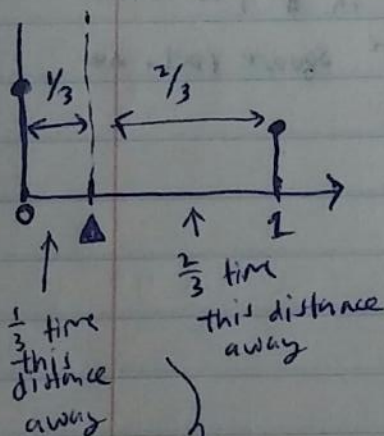 1/3 2/3
0 1
1/3 time
this
distance
away
2/3 time
this distance
away